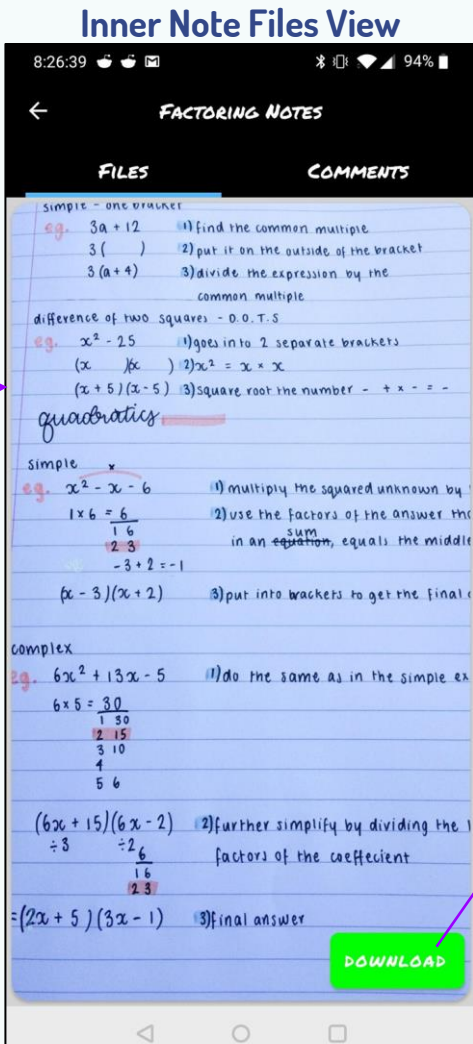 Inner Note Files View
8:26:39 94%
FACTORING NOTES
FILES COMMENTS
simple - one bracket
eg. 3a + 12 1) find the common multiple
3 ( ) 2) put it on the outside of the bracket
3 (a + 4) 3) divide the expression by the
common multiple
difference of two squares - D.O.T.S
eg. x² - 25 1) goes in to 2 separate brackets
(x )(x ) 2) x² = x × x
(x + 5)(x - 5) 3) square root the number - + x - = -
quadratics
simple x
eg. x² - x - 6 1) multiply the squared unknown by
1 x 6 = 6 2) use the factors of the answer tha
1 6 sum
2 3 in an equation, equals the middle
-3 + 2 = -1
(x - 3)(x + 2) 3) put into brackets to get the final
complex
eg. 6x² + 13x - 5 1) do the same as in the simple ex
6 x 5 = 30
1 30
2 15
3 10
4
5 6
(6x + 15)(6x - 2) 2) further simplify by dividing the
÷3 ÷2 factors of the coeffecient
6
1 6
2 3
=(2x + 5)(3x - 1) 3) final answer
DOWNLOAD